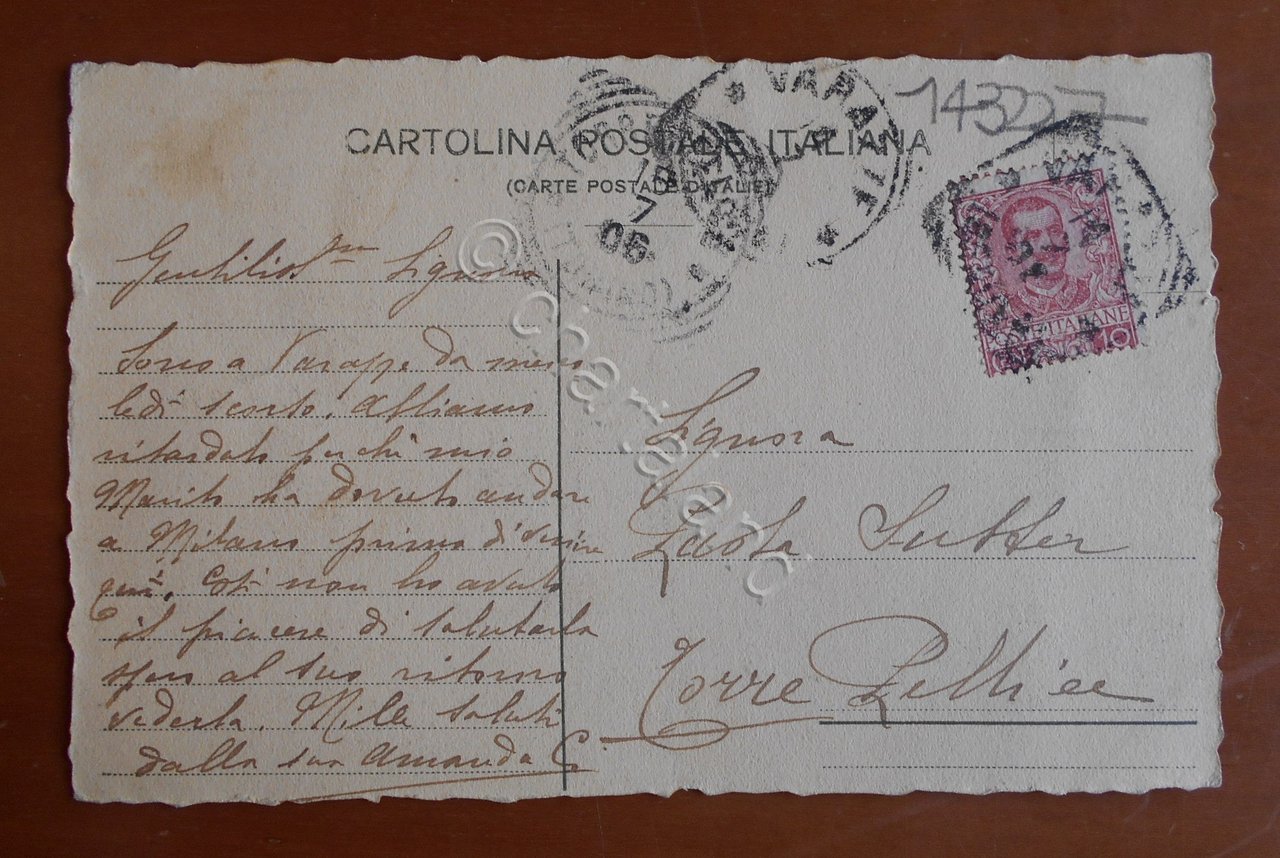 CARTOLINA POSTALE ITALIANA
(CARTE POSTALE D'ITALIE)
143227
VARA
7
06
POSTE ITALIANE
10
© cartariato
Gentilissma Signora
Sono a Varazze da merco
ledì scorso. Abbiamo
ritardato perchè mio
Marito ha dovuto andare
a Milano prima di venire
quì. Così non ho avuto
il piacere di salutarla
spero al suo ritorno
vederla. Mille saluti
dalla sua Amanda C.
Signora
Sutter
Torre Pellice